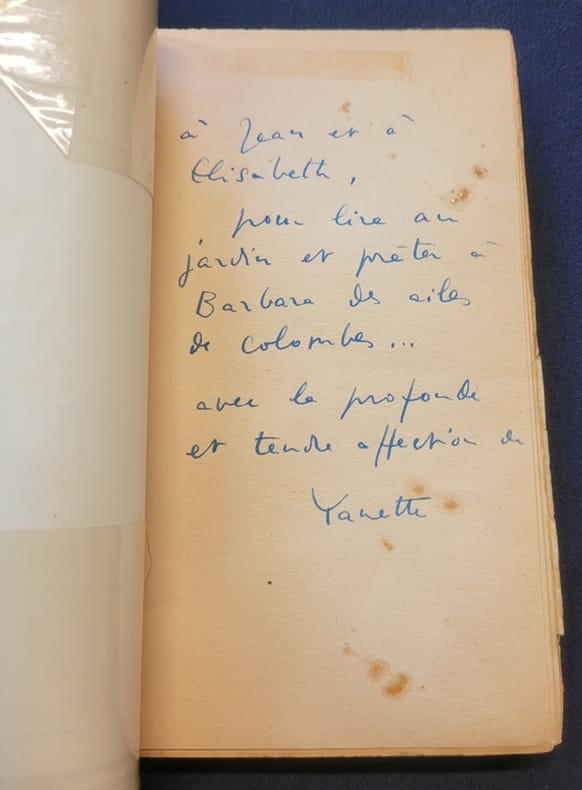 à Jean et à
Elisabeth,
pour lire au
jardin et prêter à
Barbara des ailes
de colombes...
avec la profonde
et tendre affection de
Yanette